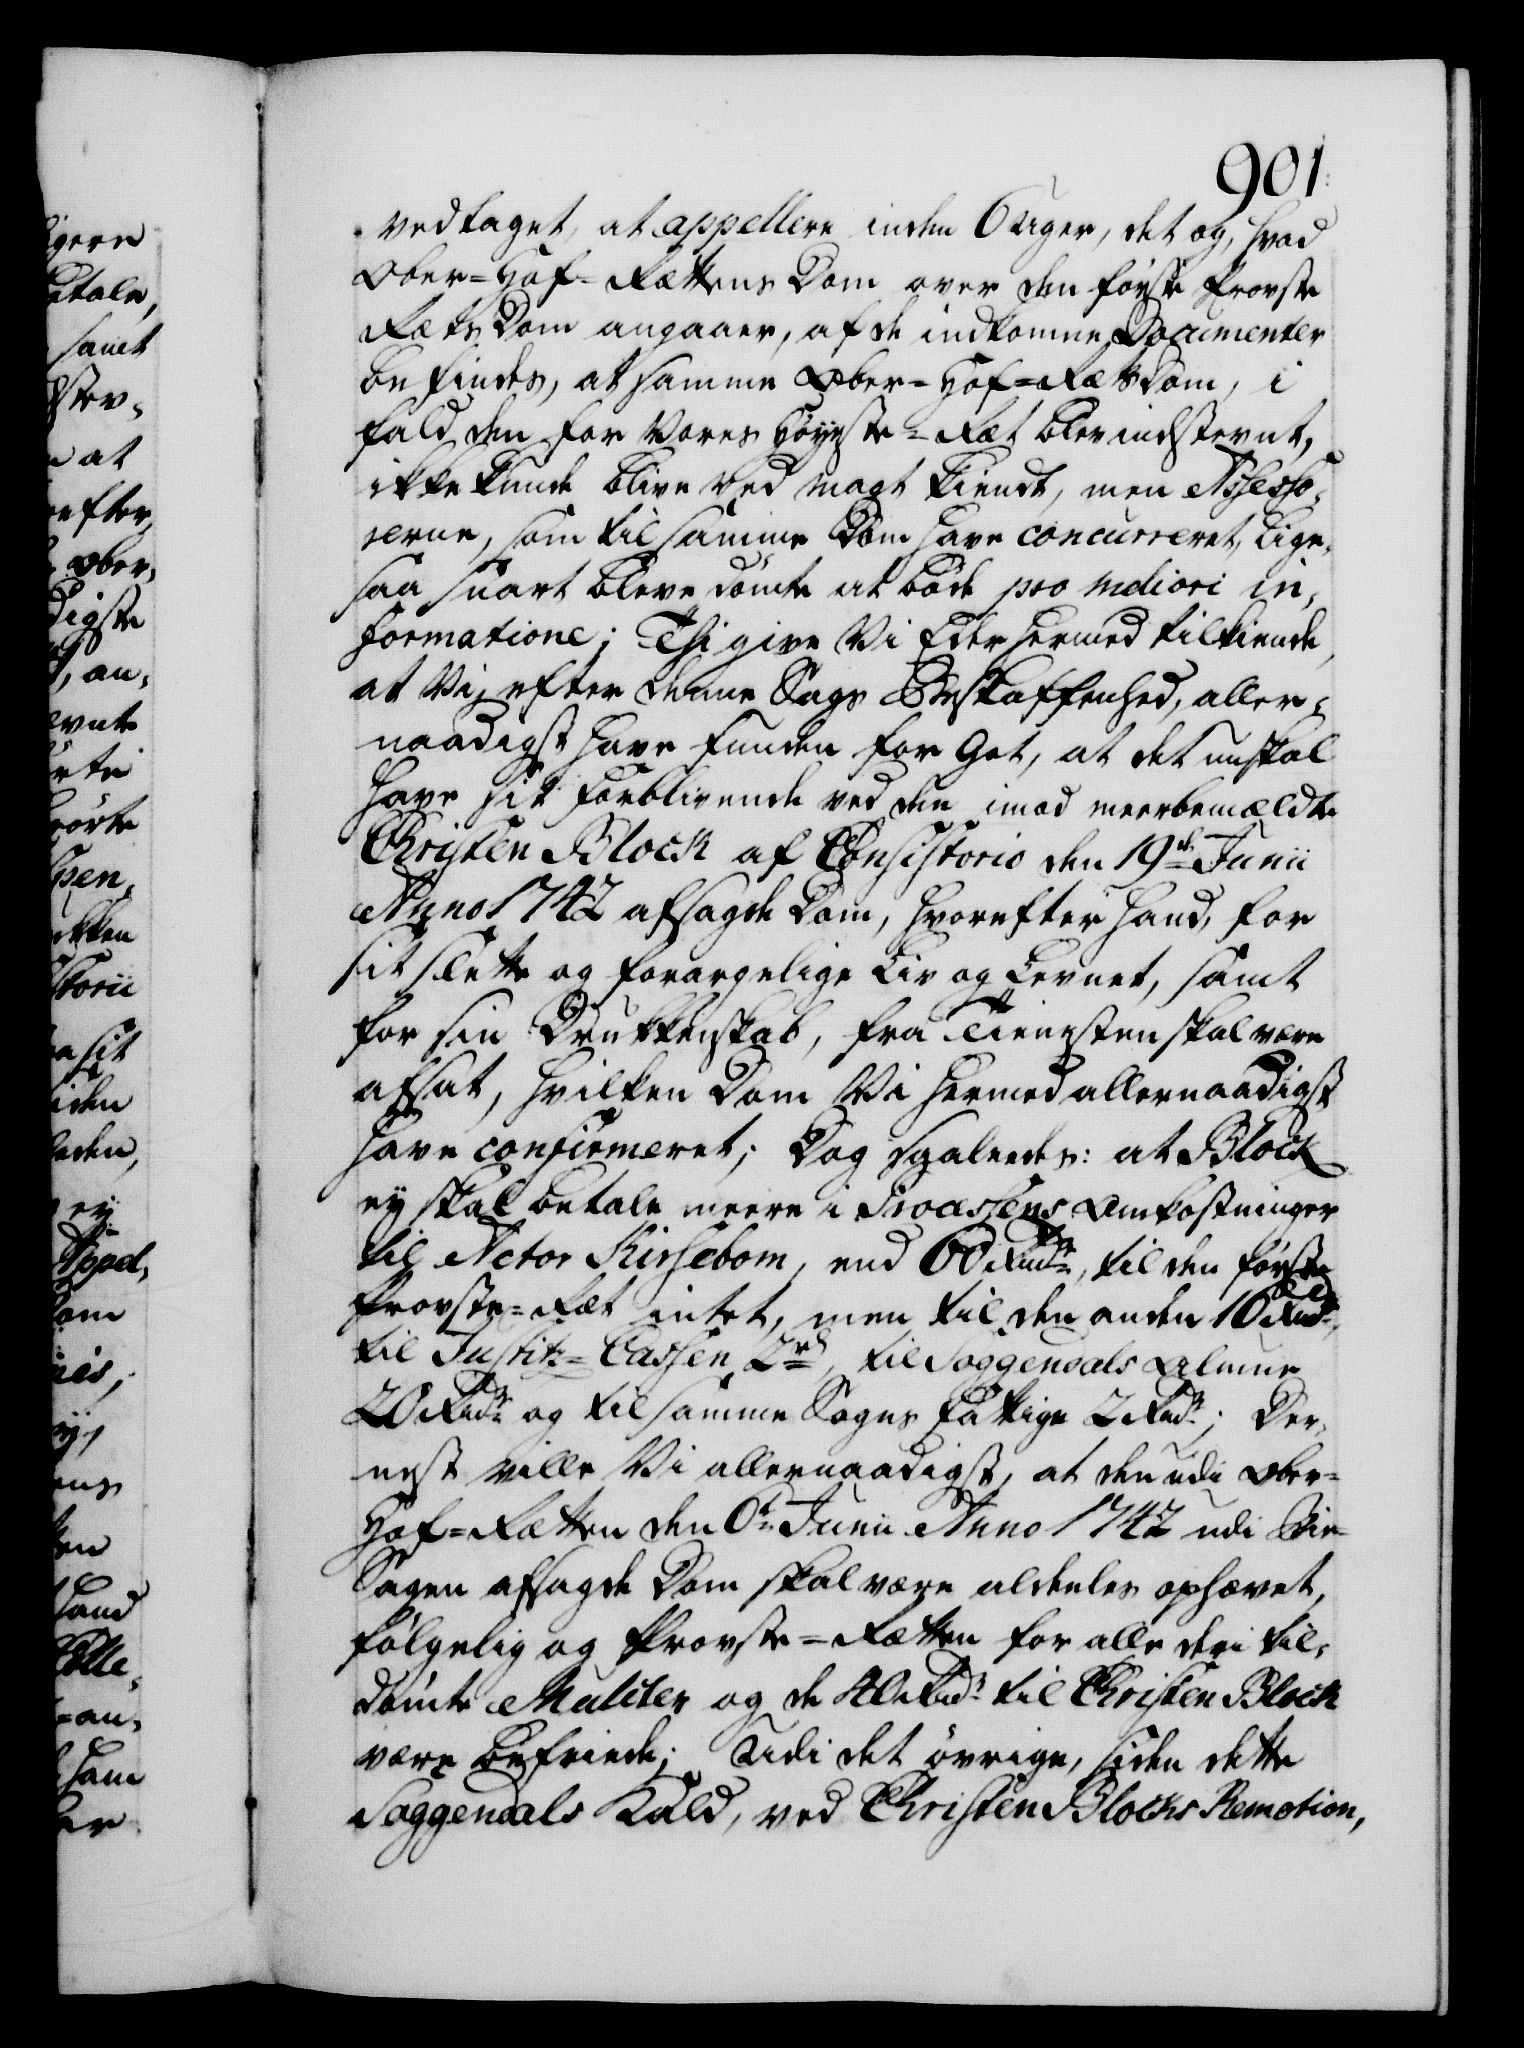 901.
vedtaget, at appellere inden 6 Uger, det og, hvad
Ober=Hof=Rettens Dom over den første Provste
Rets Dom angaaer, af de indkomne Documenter
befindes, at samme Ober=Hof=Rets Dom, i
fald den for Vores Høyeste=Ret blev indstevnt,
ikke kunde blive ved magt kiendt, men Assesso-
rerne, som til samme Dom have concurreret, lige-
saa snart bleve dömte at böde pro meliori in-
formatione; Thi give Vi Eder hermed tilkiende,
at Vi, efter denne Sags Beskaffenhed, aller-
naadigst have funden for Got, at det nu skal
have sit forblivende ved den imod meerbemældte
Christen Block af Consistorio den 19de Junii
Anno 1742 afsagde Dom, hvorefter hand, for
sit slette og forargelige Liv og Levnet, samt
for sin Drukkenskab, fra Tienesten skal være
afsat, hvilken Dom Vi hermed allernaadigst
have confirmeret; Dog saaleedes: at Block
ey skal betale meere i Processens Omkostninger
til Actor Kirsebom, end 60 Rdr, til den første
Provste=Ret intet, men til den anden 10 Rdr,
til Justitz=Cassen 2rd, til Soggendals Almue
20 Rdr og til samme Sogns Fattige 2 Rdr; Der-
nest ville Vi allernaadigst, at den udi Ober=
Hof=Retten den 6t Junii Anno 1742 udi Bie-
Sagen afsagde Dom skal være aldeeles ophævet,
følgelig og Provste=Retten for alle deri til-
dömte Mulcter og de 40 Rdr til Christen Block
være befriede; Udi det øvrige, siden dette
Soggendals Kald, ved Christen Blocks Remotion,